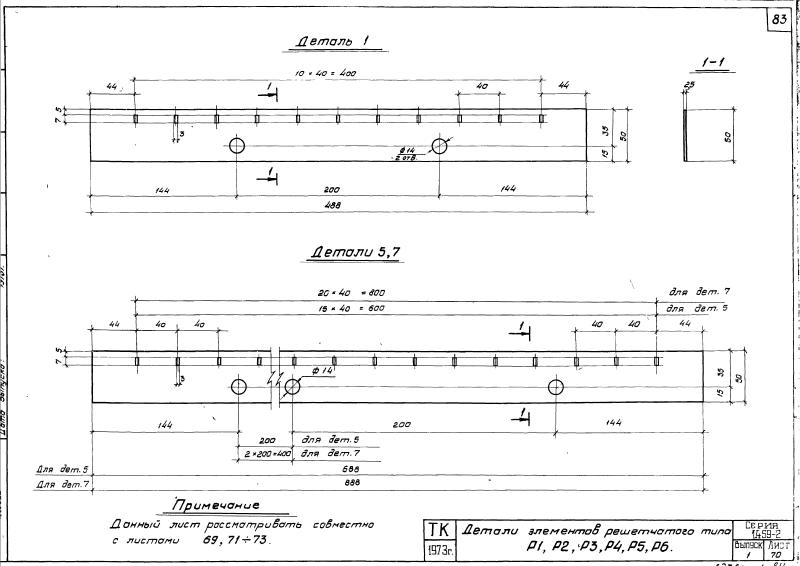 83
Деталь 1
1-1
10 × 40 = 400
44
1
40
44
2,5
5
7
3
ф14
2 отв.
35
15
50
50
1
144
200
144
488
Детали 5,7
20 × 40 = 800
для дет. 7
15 × 40 = 600
для дет. 5
44
40
40
1
40
40
44
5
7
3
ф14
35
15
50
1
144
200
144
200
для дет. 5
2×200=400
для дет. 7
Для дет. 5
688
Для дет. 7
888
Примечание
Данный лист рассматривать совместно
с листами 69, 71÷73.
ТК
1973г.
Детали элементов решетчатого типа
Р1, Р2, Р3, Р4, Р5, Р6.
Серия
1.459-2
Выпуск
1
Лист
70
Дата выпуска: